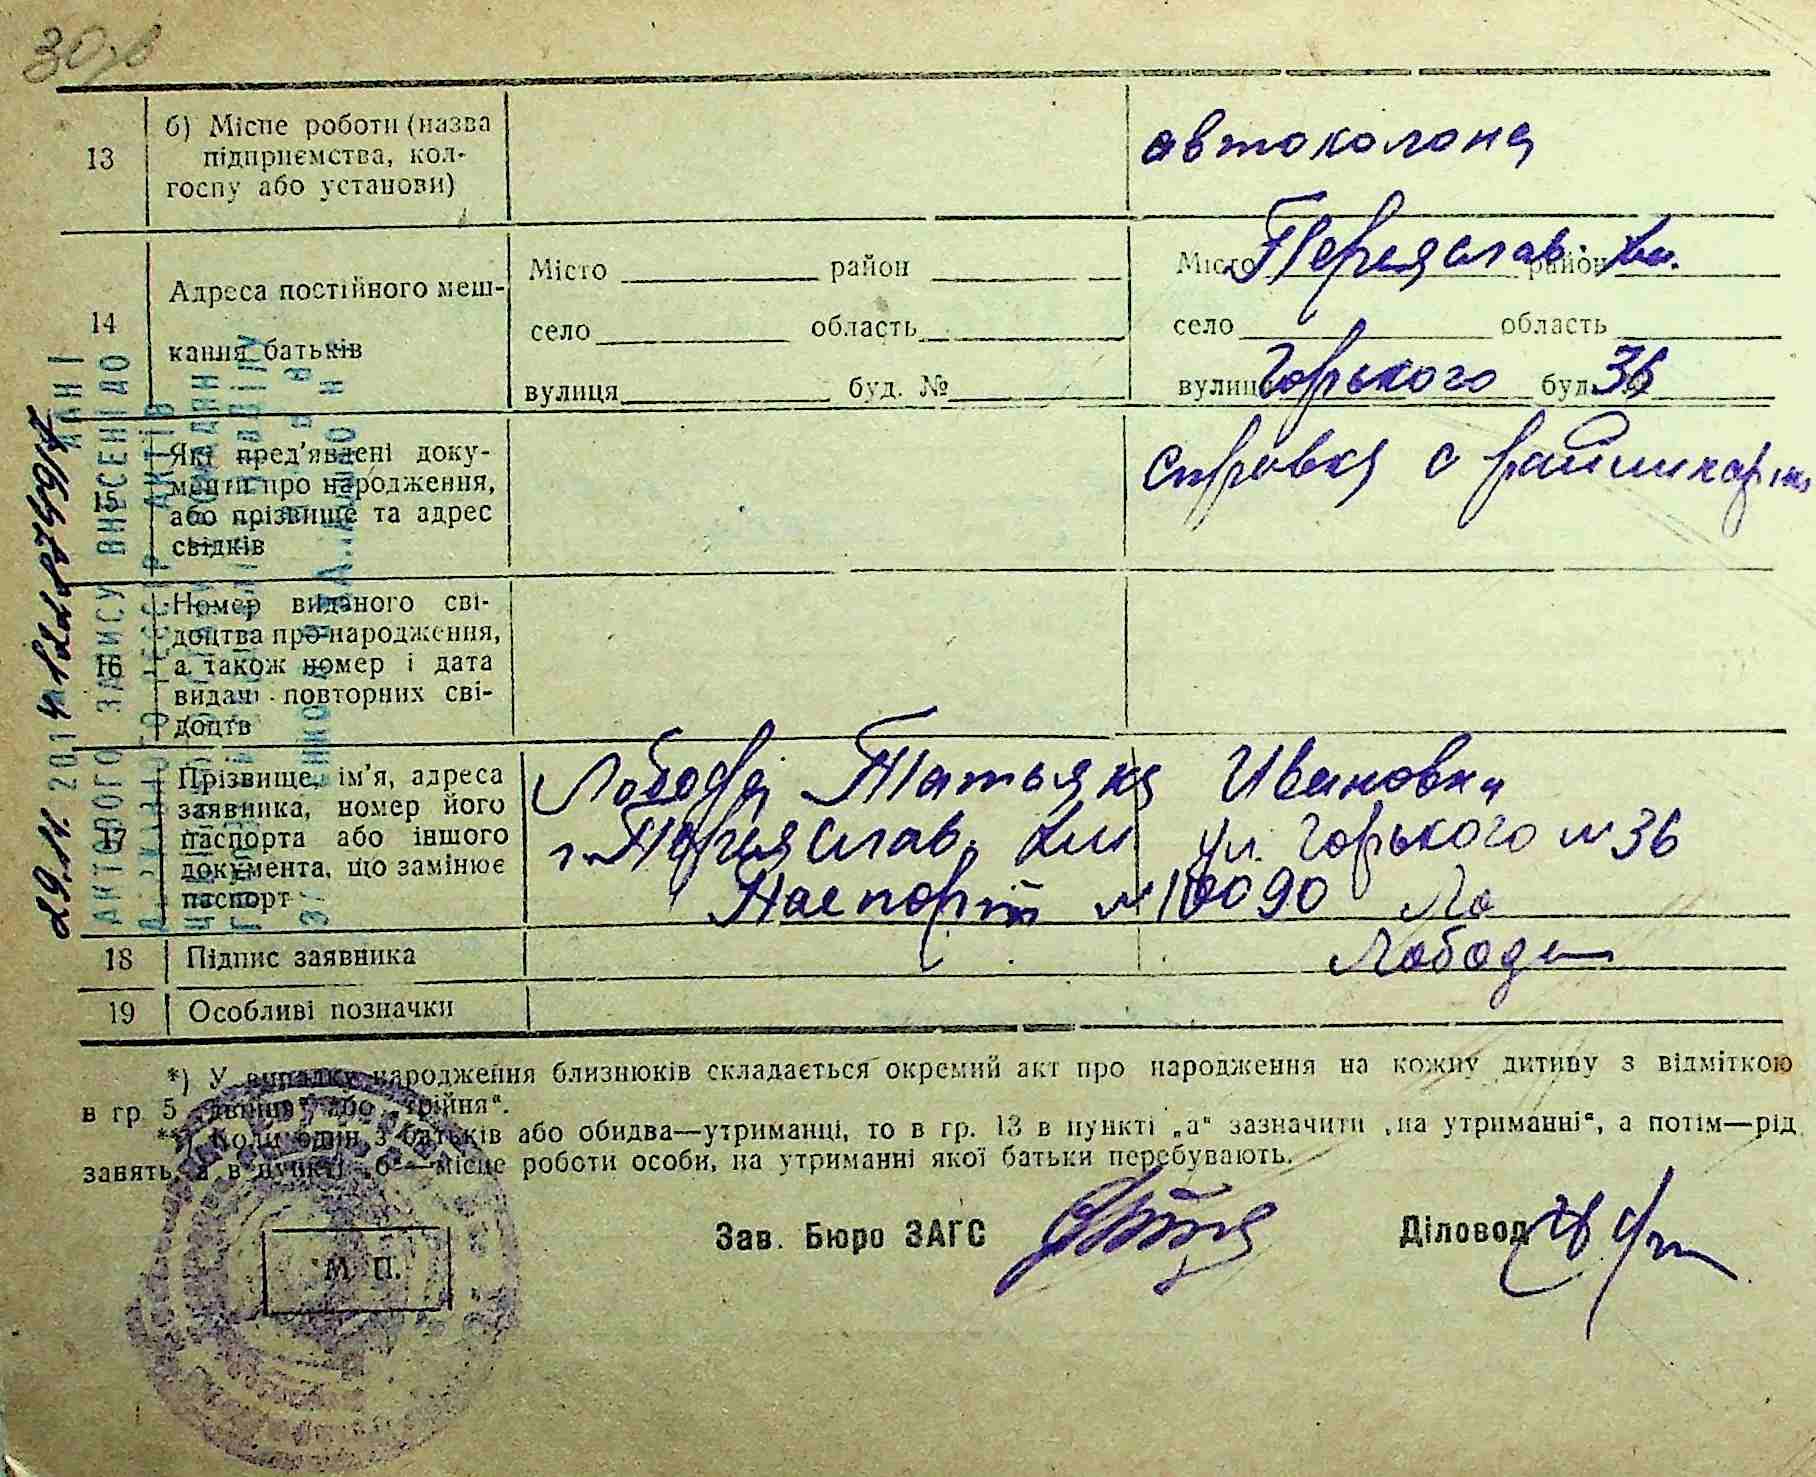 30
13
б) Місце роботи (назва
підприємства, кол-
госпу або установи)
автоколона
14
Адреса постійного меш-
кання батьків
Місто район
село область
вулиця буд. №
Місто Переяслав. Хм. район
село область
вулиця Горького буд. 36
15
Які пред'явлені доку-
менти про народження,
або прізвище та адрес
свідків
справка с
16
Номер виданого сві-
доцтва про народження,
а також номер і дата
видачі повторних сві-
доцтв
17
Прізвище, ім'я, адреса
заявника, номер його
паспорта або іншого
документа, що замінює
паспорт
Лобода Татьяна Ивановна
г. Переяслав. Хм ул. Горького № 36
Паспорт № Ло
18
Підпис заявника
Лобода
19
Особливі позначки
*) У випадку народження близнюків складається окремий акт про народження на кожну дитину з відміткою
в гр. 5 „двійня“ або „трійня“.
**) Коли один з батьків або обидва—утриманці, то в гр. 13 в пункті „а“ зазначити „на утриманні“, а потім—рід
занять, а в пункті „б“—місце роботи особи, на утриманні якої батьки перебувають.
Зав. Бюро ЗАГС
Діловод
М. П.
29.11.201
АКТОВОГО ЗАПИСУ ВНЕСЕНІ ДО